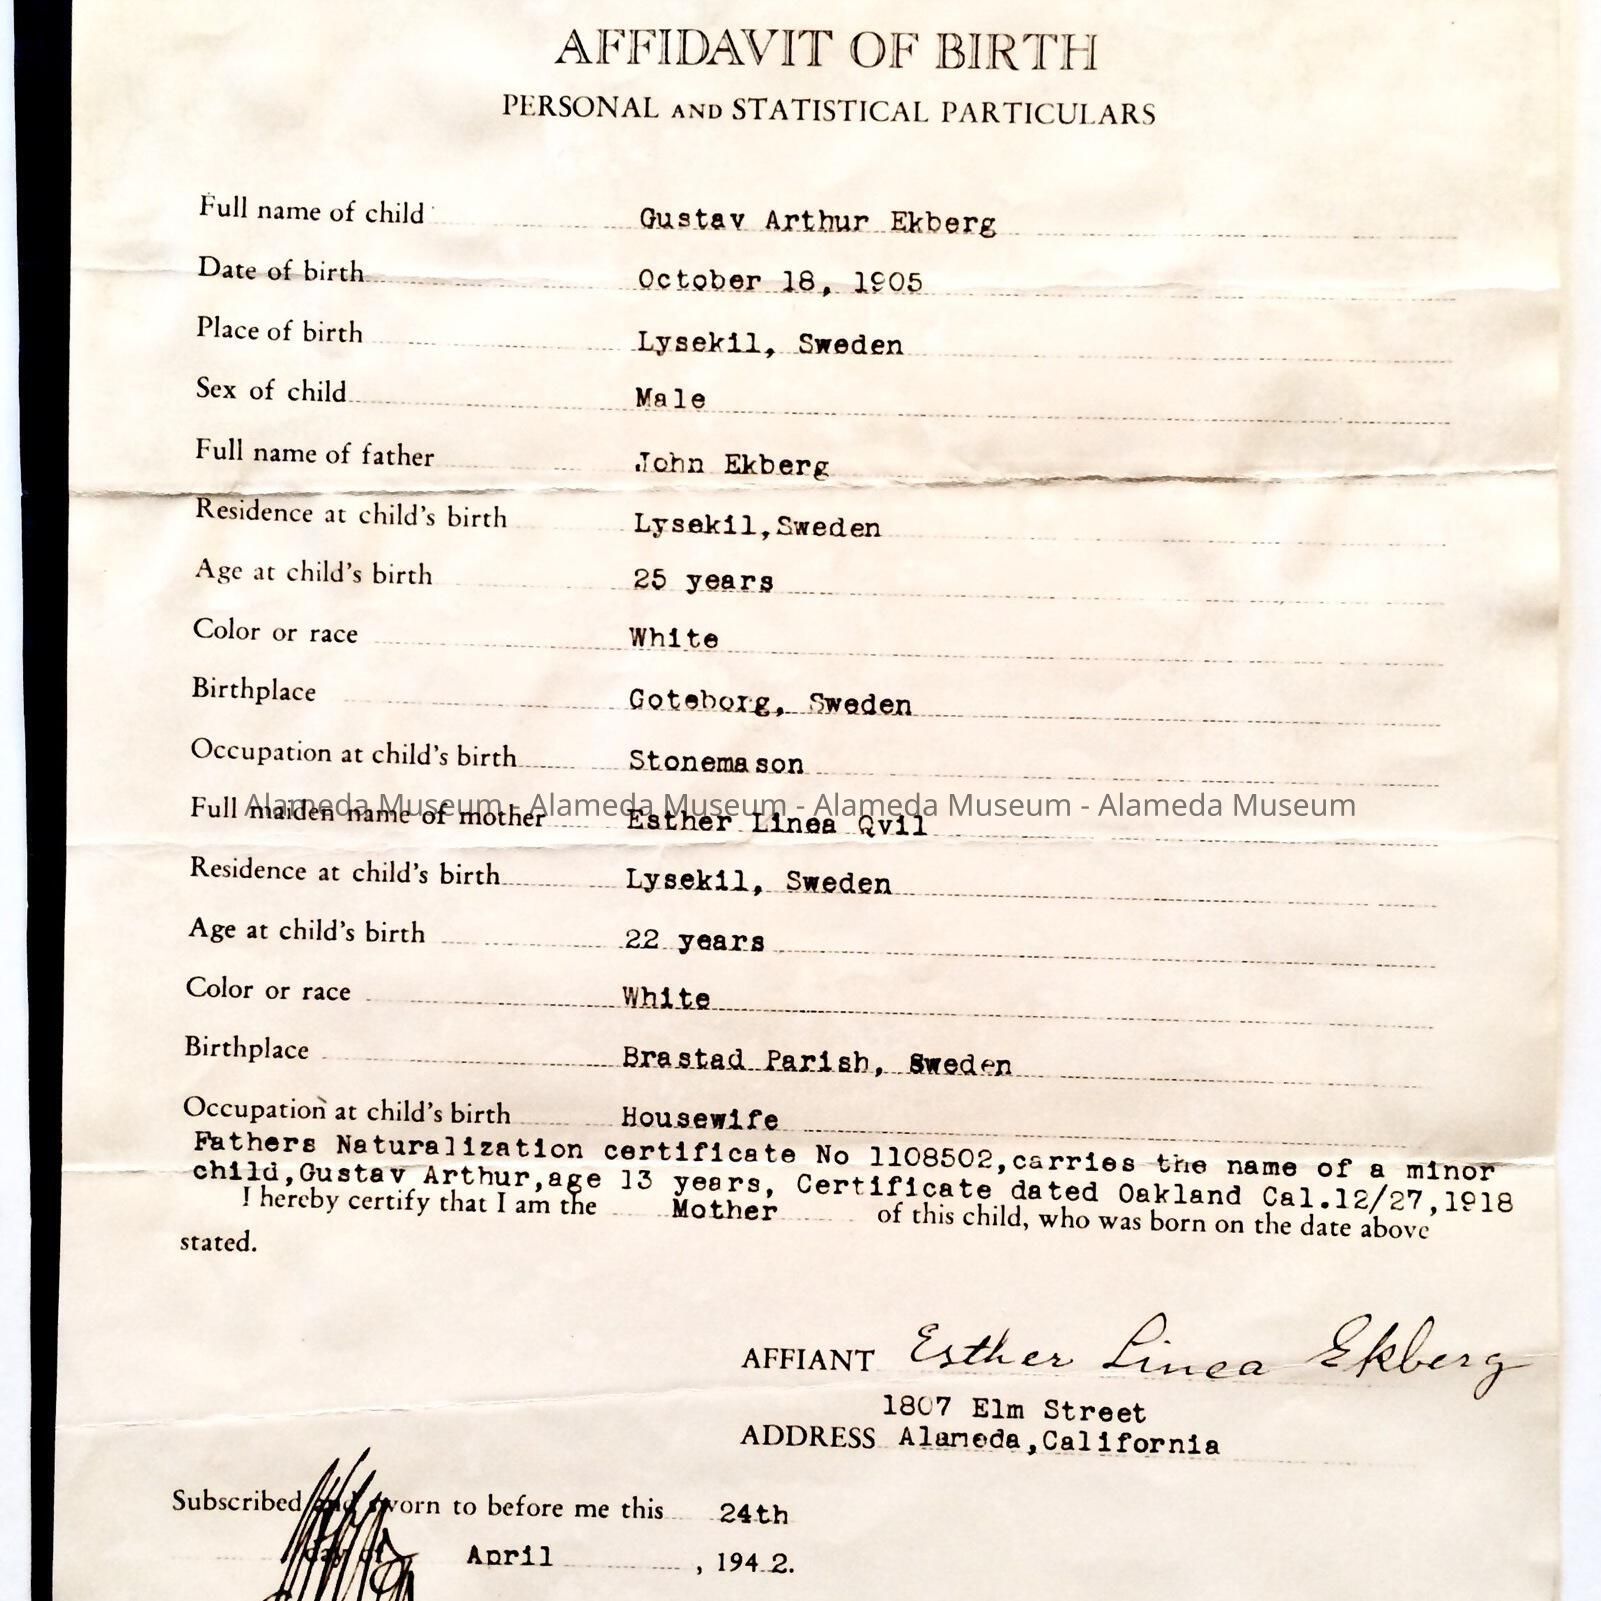 AFFIDAVIT OF BIRTH
PERSONAL AND STATISTICAL PARTICULARS
Full name of child Gustav Arthur Ekberg
Date of birth October 18, 1905
Place of birth Lysekil, Sweden
Sex of child Male
Full name of father John Ekberg
Residence at child's birth Lysekil,Sweden
Age at child's birth 25 years
Color or race White
Birthplace Goteborg, Sweden
Occupation at child's birth Stonemason
Alameda Museum - Alameda Museum - Alameda Museum - Alameda Museum
Full maiden name of mother Esther Linea Qvil
Residence at child's birth Lysekil, Sweden
Age at child's birth 22 years
Color or race White
Birthplace Brastad Parish, Sweden
Occupation at child's birth Housewife
Fathers Naturalization certificate No 1108502,carries the name of a minor
child,Gustav Arthur,age 13 years, Certificate dated Oakland Cal.12/27,1918
I hereby certify that I am the Mother of this child, who was born on the date above
stated.
AFFIANT Esther Linea Ekberg
1807 Elm Street
ADDRESS Alameda,California
Subscribed and sworn to before me this 24th
day of April, 1942.